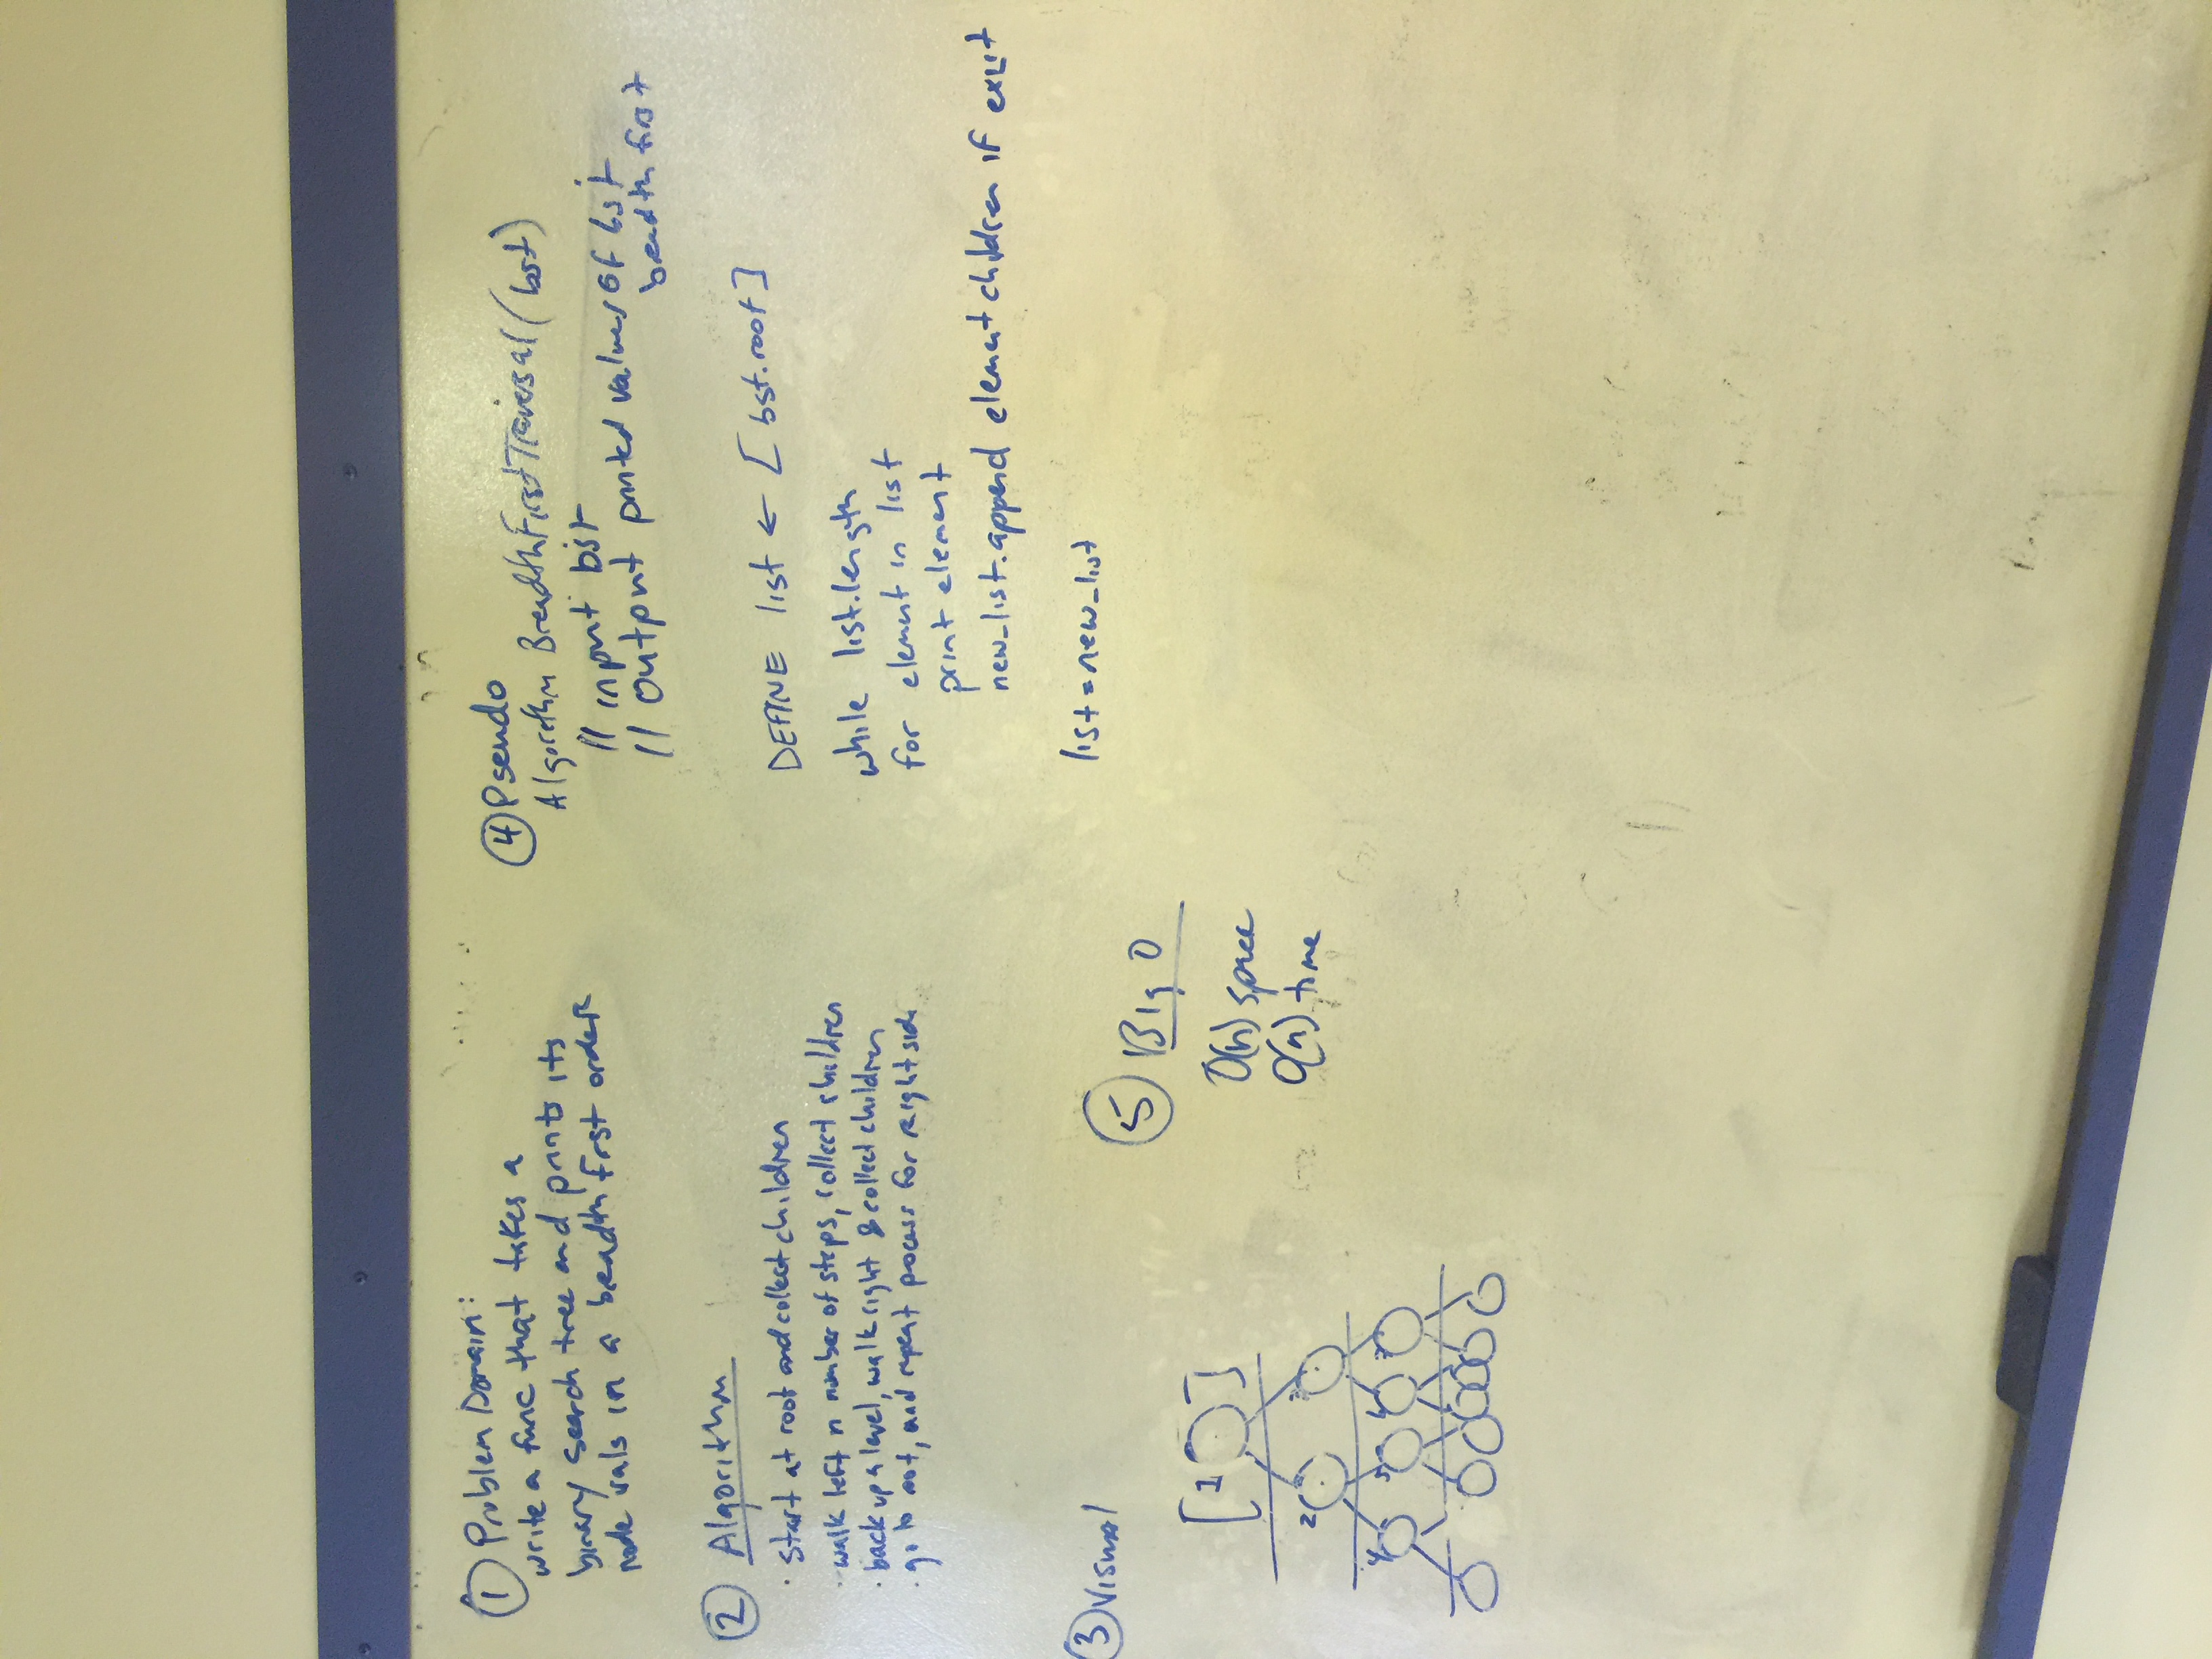 ① Problem Domain:
write a func that takes a
binary search tree and prints its
node vals in a breadth first order
② Algorithm
· start at root and collect children
· walk left n number of steps, collect children
· back up a level, walk right & collect children
· go to root, and repeat process for right side
③ Visual
[ 1 ]
2 3
4 5 6 7
⑤ Big O
O(n) space
O(n) time
④ Pseudo
Algorithm BreadthFirstTraversal (bst)
// input bst
// output printed values of bst
breadth first
DEFINE list ← [ bst.root ]
while list.length
for element in list
print element
new_list.append element children if exist
list = new_list